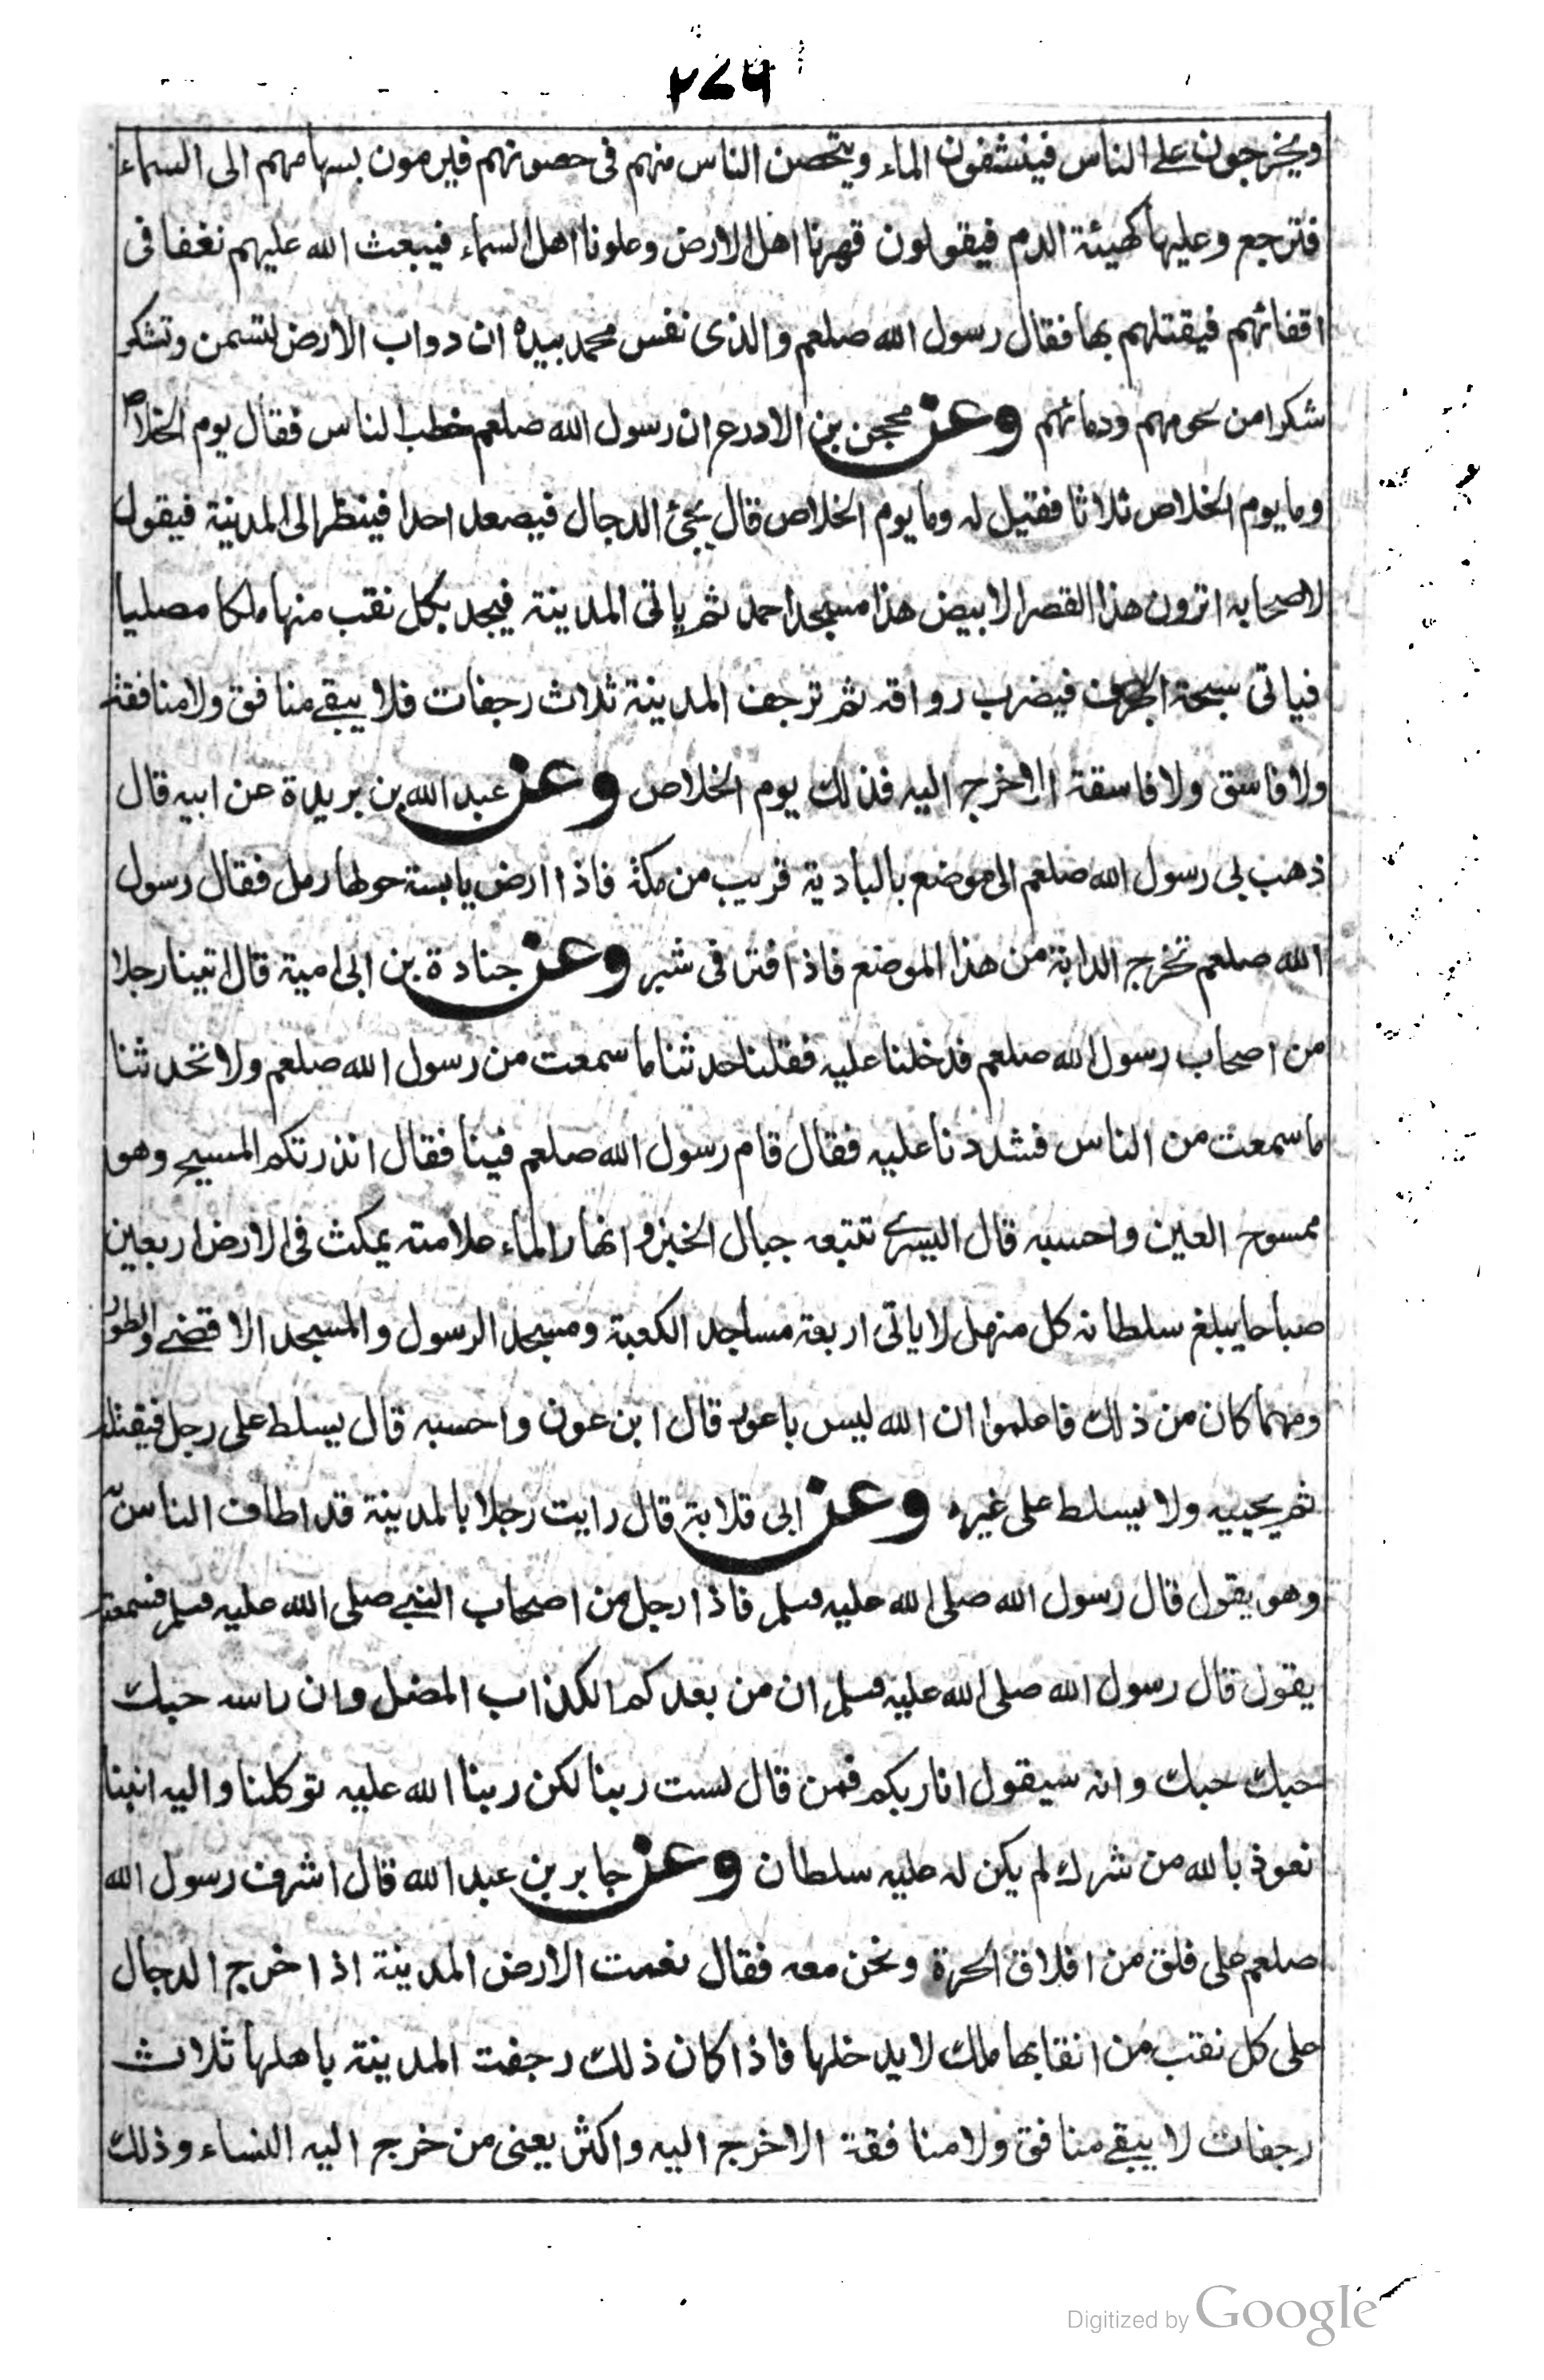 ٢٧٦
ويخرجون على الناس فينشفون الماء ويتحصن الناس منهم فى حصونهم فيرمون بسهامهم الى السماء
فترجع وعليها كهيئة الدم فيقولون قهرنا اهل الارض وعلونا اهل السماء فيبعث الله عليهم نغفا فى
اقفائهم فيقتلهم بها فقال رسول الله صلعم والذى نفس محمد بيده ان دواب الارض لتسمن وتشكر
شكرا من لحومهم ودمائهم وعن محجن بن الادرع ان رسول الله صلعم خطب الناس فقال يوم الخلاص
وما يوم الخلاص ثلاثا فقيل له وما يوم الخلاص قال يجئ الدجال فيصعد احدا فينظر الى المدينة فيقول
لاصحابه اترون هذا القصر الابيض هذا مسجد احمد ثم ياتى المدينة فيجد بكل نقب منها ملكا مصليا
فياتى سبحة الجرف فيضرب رواقه ثم ترجف المدينة ثلاث رجفات فلا يبقے منافق ولا منافقة
ولا فاسق ولا فاسقة الا خرج اليه فذلك يوم الخلاص وعن عبد الله بن بريدة عن ابيه قال
ذهب بى رسول الله صلعم الى موضع بالبادية قريب من مكة فاذا ارض يابسة حولها رمل فقال رسول
الله صلعم تخرج الدابة من هذا الموضع فاذا فتر فى شبر وعن جنادة بن ابى امية قال اتينا رجلا
من اصحاب رسول الله صلعم فدخلنا عليه فقلنا حدثنا ما سمعت من رسول الله صلعم ولا تحدثنا
ما سمعت من الناس فشددنا عليه فقال قام رسول الله صلعم فينا فقال انذرتكم المسيح وهو
ممسوح العين واحسبه قال اليسرے تتبعه جبال الخبز و انهار الماء علامته يمكث فى الارض اربعين
صباحا يبلغ سلطانه كل منهل لا ياتى اربعة مساجد الكعبة ومسجد الرسول والمسجد الاقصے والطور
ومهما كان من ذلك فاعلموا ان الله ليس باعور قال ابن عون واحسبه قال يسلط على رجل فيقتله
ثم يحييه ولا يسلط على غيره وعن ابى قلابة قال رايت رجلا بالمدينة قد اطاف الناس به
وهو يقول قال رسول الله صلى الله عليه وسلم فاذا رجل من اصحاب النبے صلى الله عليه وسلم فسمعته
يقول قال رسول الله صلى الله عليه وسلم ان من بعدكم الكذاب المضل وان راسه حبك
حبك حبك وانه سيقول انا ربكم فمن قال لست ربنا لكن ربنا الله عليه توكلنا واليه انبنا
نعوذ بالله من شرك لم يكن له عليه سلطان وعن جابر بن عبد الله قال اشرف رسول الله
صلعم على فلق من افلاق الحرة ونحن معه فقال نعمت الارض المدينة اذا خرج الدجال
على كل نقب من انقابها ملك لا يدخلها فاذا كان ذلك رجفت المدينة باهلها ثلاث
رجفات لا يبقے منافق ولا منافقة الا خرج اليه واكثر يعنى من خرج اليه النساء وذلك
Digitized by Google